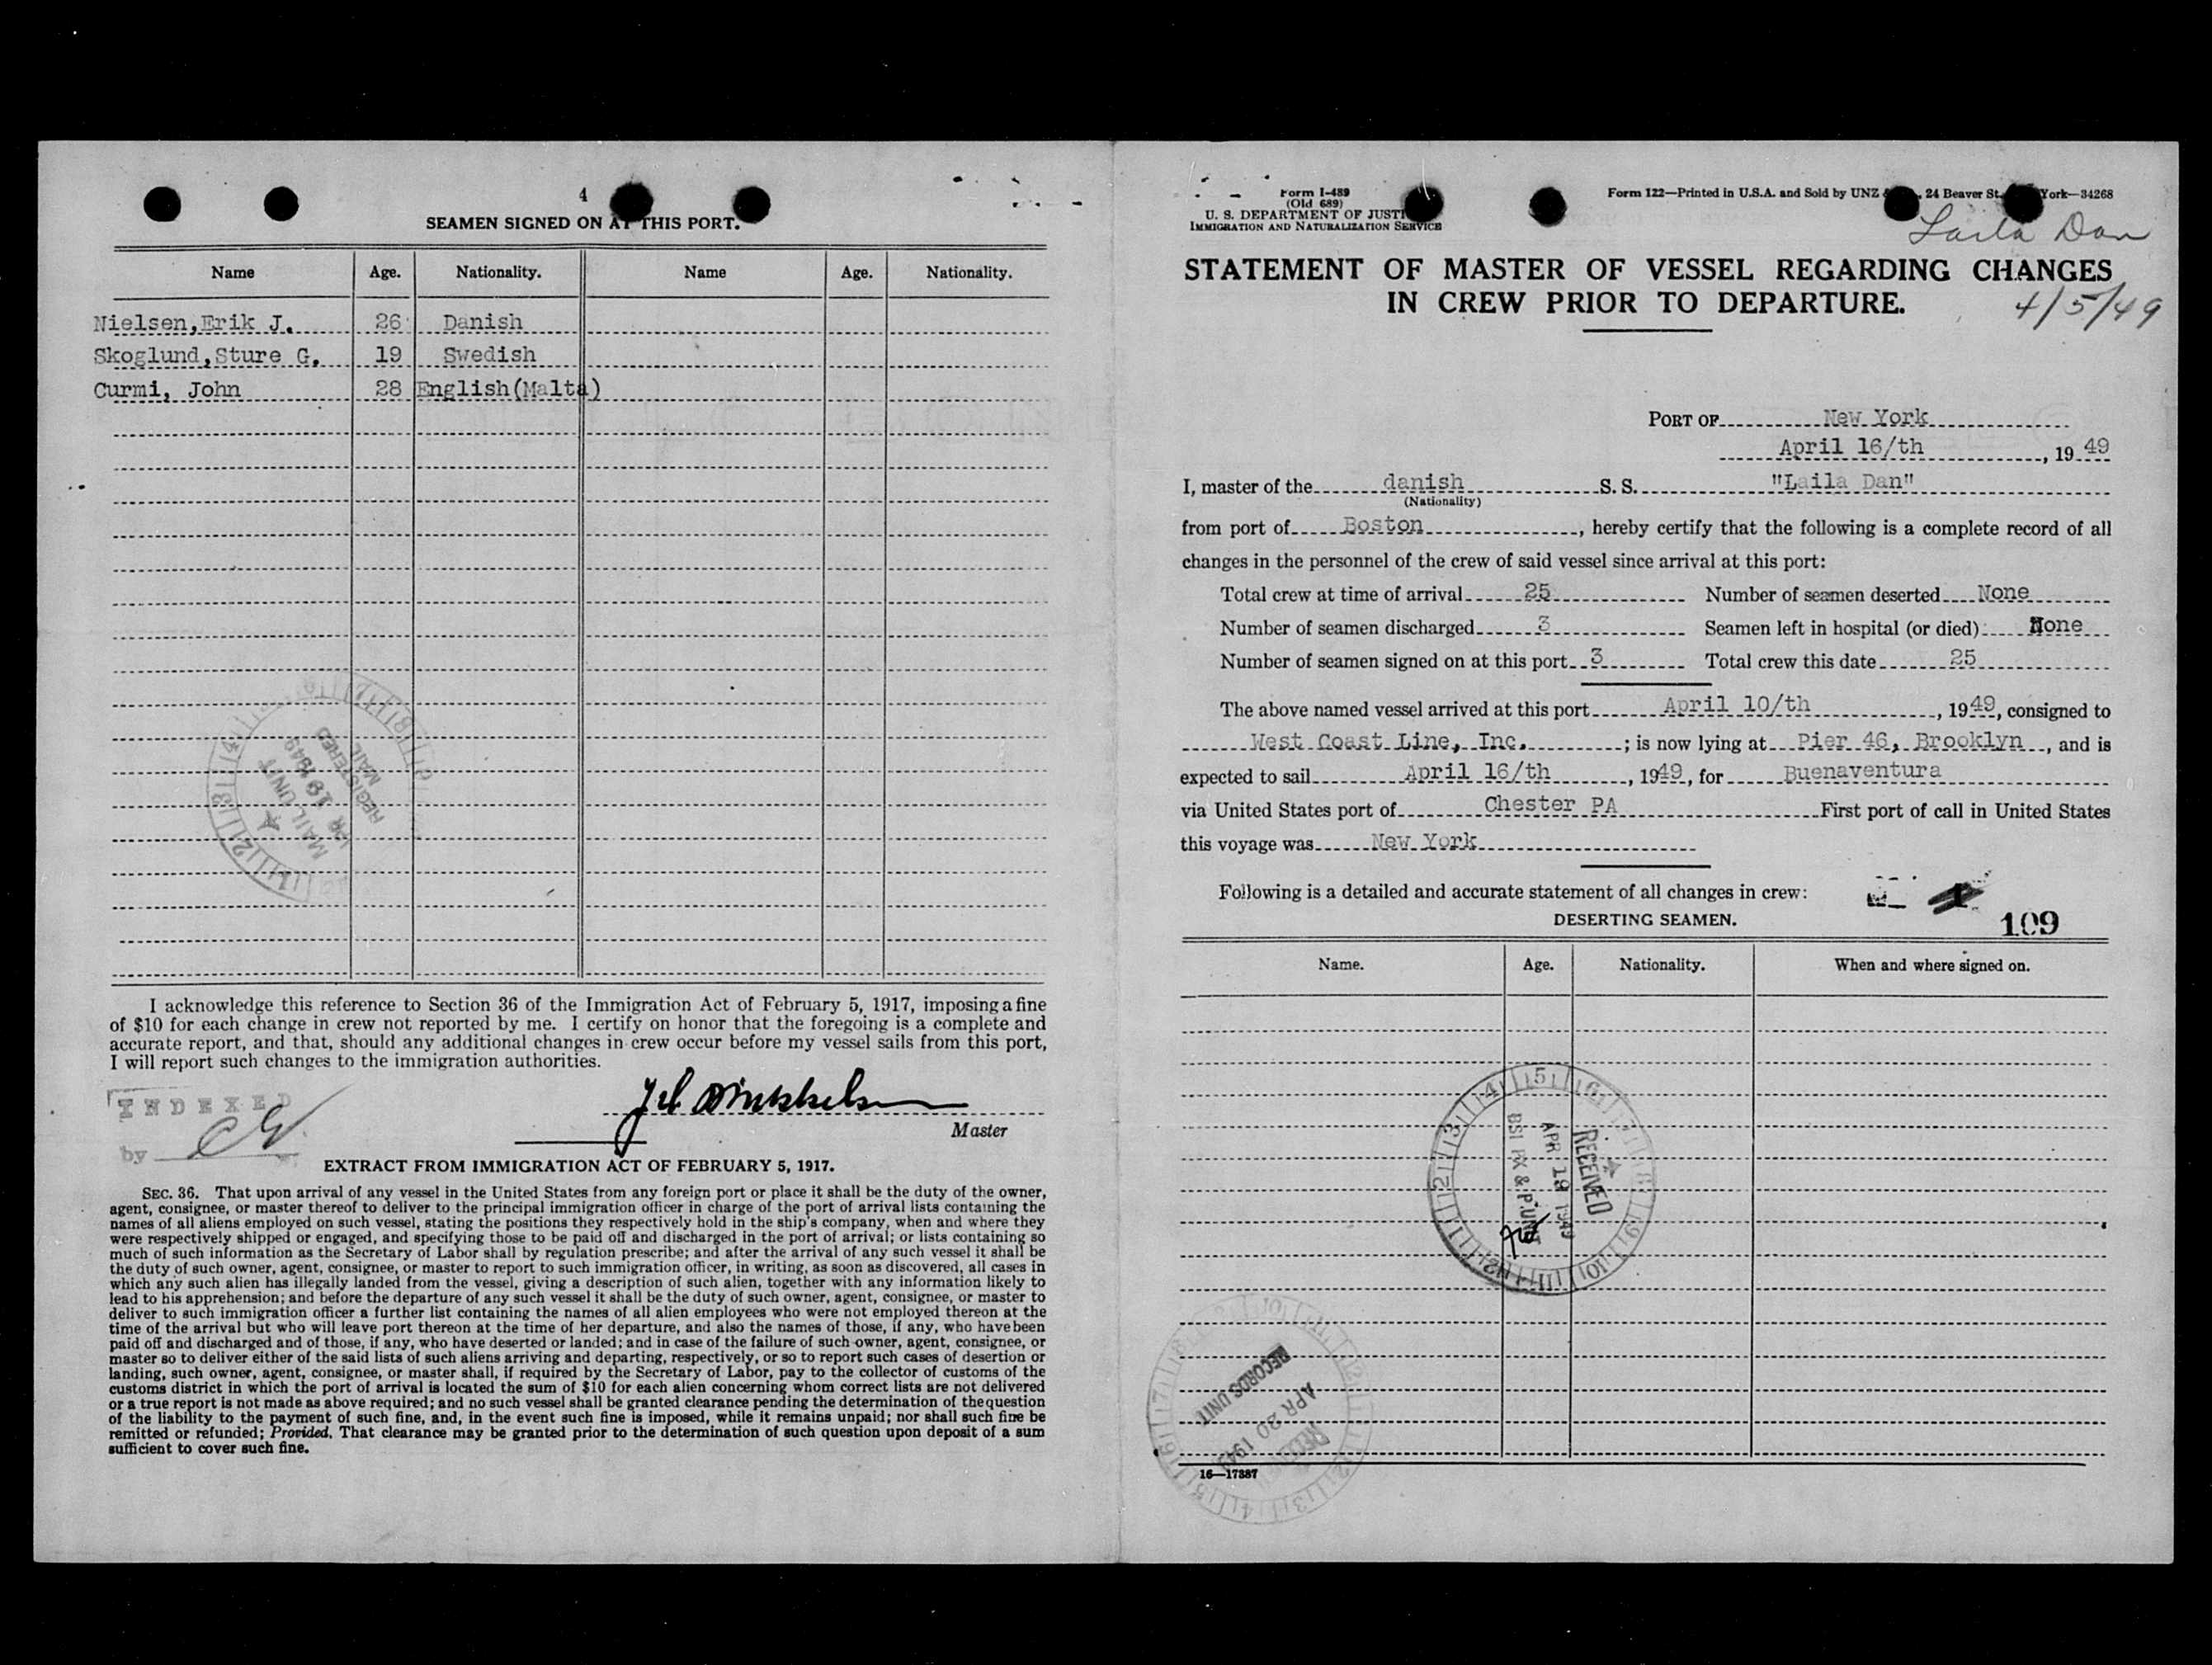 4
SEAMEN SIGNED ON AT THIS PORT.
Name Age. Nationality. Name Age. Nationality.
Nielsen,Erik J. 26 Danish
Skoglund,Sture G. 19 Swedish
Curmi, John 28 English(Malta)
REGISTERED
MAIL
19 1949
MAIL UNIT
I acknowledge this reference to Section 36 of the Immigration Act of February 5, 1917, imposing a fine
of $10 for each change in crew not reported by me. I certify on honor that the foregoing is a complete and
accurate report, and that, should any additional changes in crew occur before my vessel sails from this port,
I will report such changes to the immigration authorities.
INDEXED
by
Master
EXTRACT FROM IMMIGRATION ACT OF FEBRUARY 5, 1917.
SEC. 36. That upon arrival of any vessel in the United States from any foreign port or place it shall be the duty of the owner,
agent, consignee, or master thereof to deliver to the principal immigration officer in charge of the port of arrival lists containing the
names of all aliens employed on such vessel, stating the positions they respectively hold in the ship's company, when and where they
were respectively shipped or engaged, and specifying those to be paid off and discharged in the port of arrival; or lists containing so
much of such information as the Secretary of Labor shall by regulation prescribe; and after the arrival of any such vessel it shall be
the duty of such owner, agent, consignee, or master to report to such immigration officer, in writing, as soon as discovered, all cases in
which any such alien has illegally landed from the vessel, giving a description of such alien, together with any information likely to
lead to his apprehension; and before the departure of any such vessel it shall be the duty of such owner, agent, consignee, or master to
deliver to such immigration officer a further list containing the names of all alien employees who were not employed thereon at the
time of the arrival but who will leave port thereon at the time of her departure, and also the names of those, if any, who have been
paid off and discharged and of those, if any, who have deserted or landed; and in case of the failure of such owner, agent, consignee, or
master so to deliver either of the said lists of such aliens arriving and departing, respectively, or so to report such cases of desertion or
landing, such owner, agent, consignee, or master shall, if required by the Secretary of Labor, pay to the collector of customs of the
customs district in which the port of arrival is located the sum of $10 for each alien concerning whom correct lists are not delivered
or a true report is not made as above required; and no such vessel shall be granted clearance pending the determination of the question
of the liability to the payment of such fine, and, in the event such fine is imposed, while it remains unpaid; nor shall such fine be
remitted or refunded; Provided, That clearance may be granted prior to the determination of such question upon deposit of a sum
sufficient to cover such fine.
Form I-489
(Old 689)
U. S. DEPARTMENT OF JUSTI
IMMIGRATION AND NATURALIZATION SERVICE
Form 122—Printed in U.S.A. and Sold by UNZ 24 Beaver St. York—34268
Laila Dan
STATEMENT OF MASTER OF VESSEL REGARDING CHANGES
IN CREW PRIOR TO DEPARTURE.
4/5/49
PORT OF New York
April 16/th, 1949
I, master of the danish S. S. "Laila Dan"
(Nationality)
from port of Boston, hereby certify that the following is a complete record of all
changes in the personnel of the crew of said vessel since arrival at this port:
Total crew at time of arrival 25 Number of seamen deserted None
Number of seamen discharged 3 Seamen left in hospital (or died) None
Number of seamen signed on at this port 3 Total crew this date 25
The above named vessel arrived at this port April 10/th, 1949, consigned to
West Coast Line, Inc. ; is now lying at Pier 46, Brooklyn, and is
expected to sail April 16/th, 1949, for Buenaventura
via United States port of Chester PA First port of call in United States
this voyage was New York
Following is a detailed and accurate statement of all changes in crew:
109
DESERTING SEAMEN.
Name. Age. Nationality. When and where signed on.
RECEIVED
APR 19 1949
RECORDS UNIT
APR 20 194
16—17887